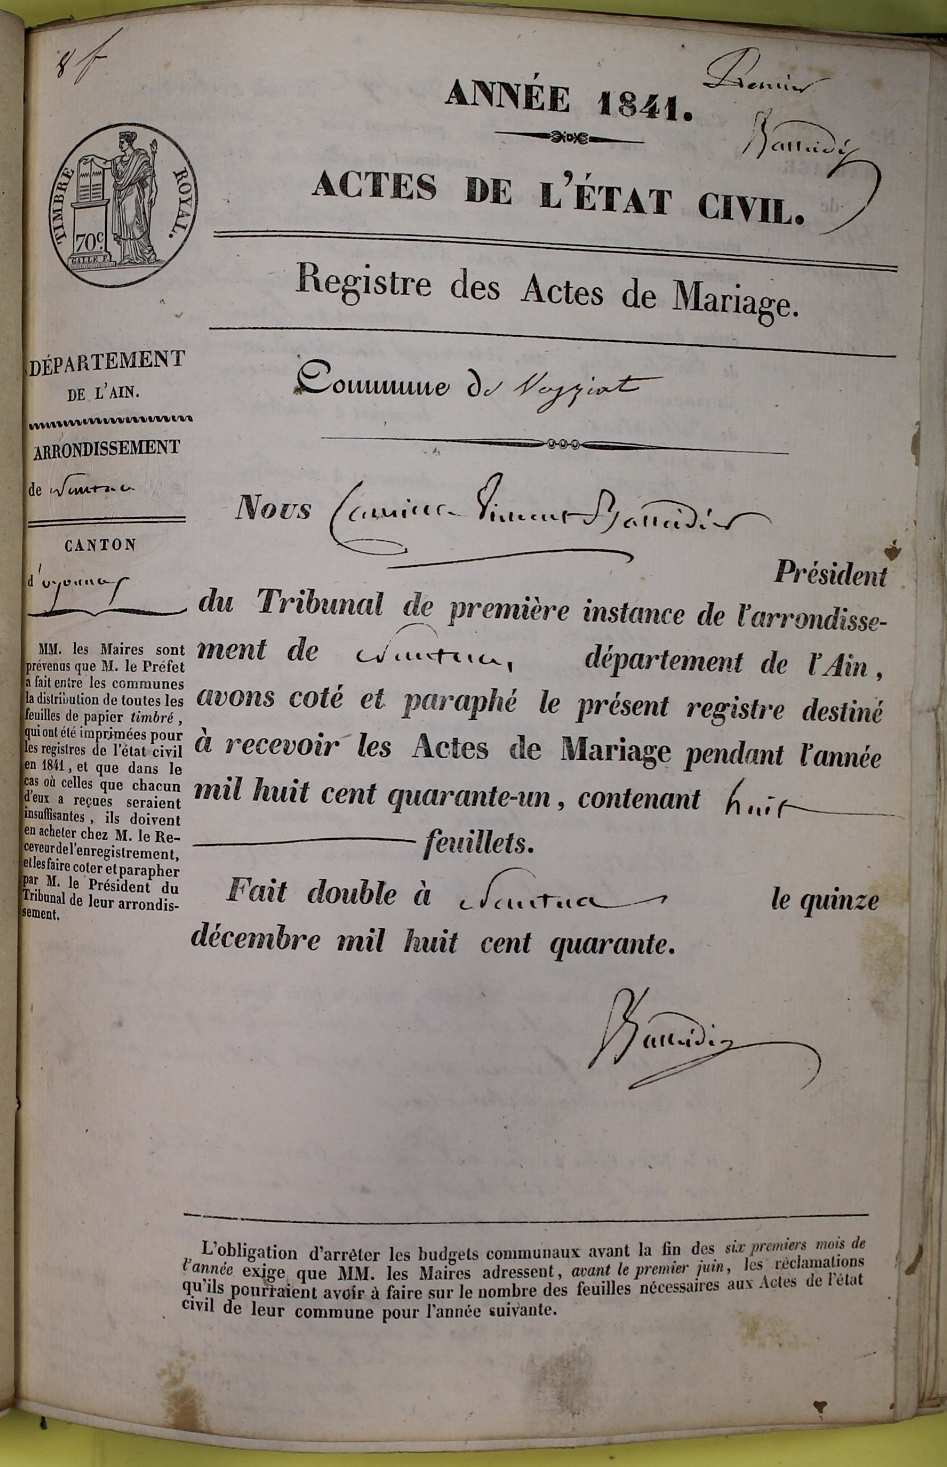 8 f
Premier
ANNÉE 1841.
ACTES DE L'ÉTAT CIVIL.
TIMBRE ROYAL.
70c.
Registre des Actes de Mariage.
DÉPARTEMENT
DE L'AIN.
ARRONDISSEMENT
de Nantua
CANTON
d'oyonnax
MM. les Maires sont
prévenus que M. le Préfet
a fait entre les communes
la distribution de toutes les
feuilles de papier timbré,
qui ont été imprimées pour
les registres de l'état civil
en 1841, et que dans le
cas où celles que chacun
d'eux a reçues seraient
insuffisantes, ils doivent
en acheter chez M. le Re-
ceveur de l'enregistrement,
et les faire coter et parapher
par M. le Président du
Tribunal de leur arrondis-
sement.
Commune de Veyziat
Nous Vincent
Président
du Tribunal de première instance de l'arrondisse-
ment de Nantua, département de l'Ain,
avons coté et paraphé le présent registre destiné
à recevoir les Actes de Mariage pendant l'année
mil huit cent quarante-un, contenant huit
feuillets.
Fait double à Nantua le quinze
décembre mil huit cent quarante.
L'obligation d'arrêter les budgets communaux avant la fin des six premiers mois de
l'année exige que MM. les Maires adressent, avant le premier juin, les réclamations
qu'ils pourraient avoir à faire sur le nombre des feuilles nécessaires aux Actes de l'état
civil de leur commune pour l'année suivante.